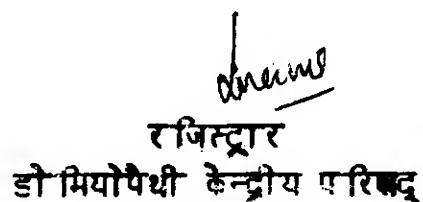 रजिस्ट्रार
होमियोपैथी केन्द्रीय परिषद्